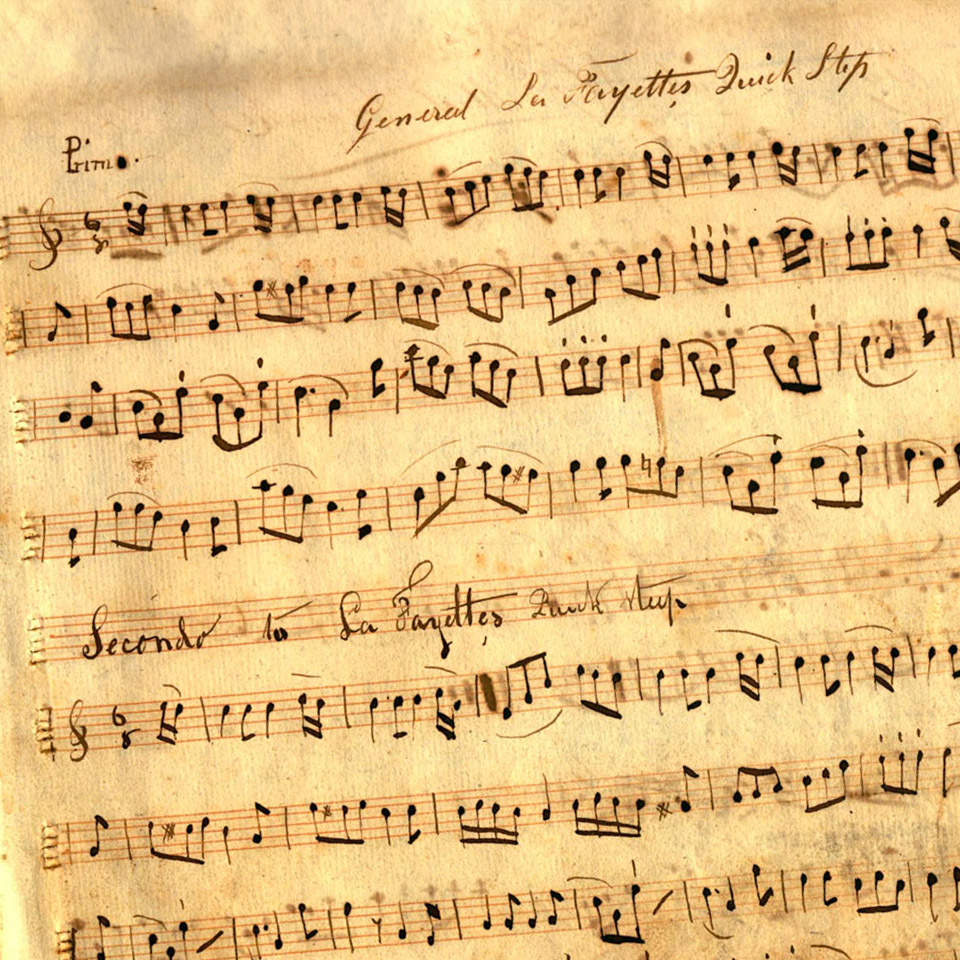 General La Fayettes Quick Step
Primo.
6
8
Secondo to La Fayettes Quick Step
6
8